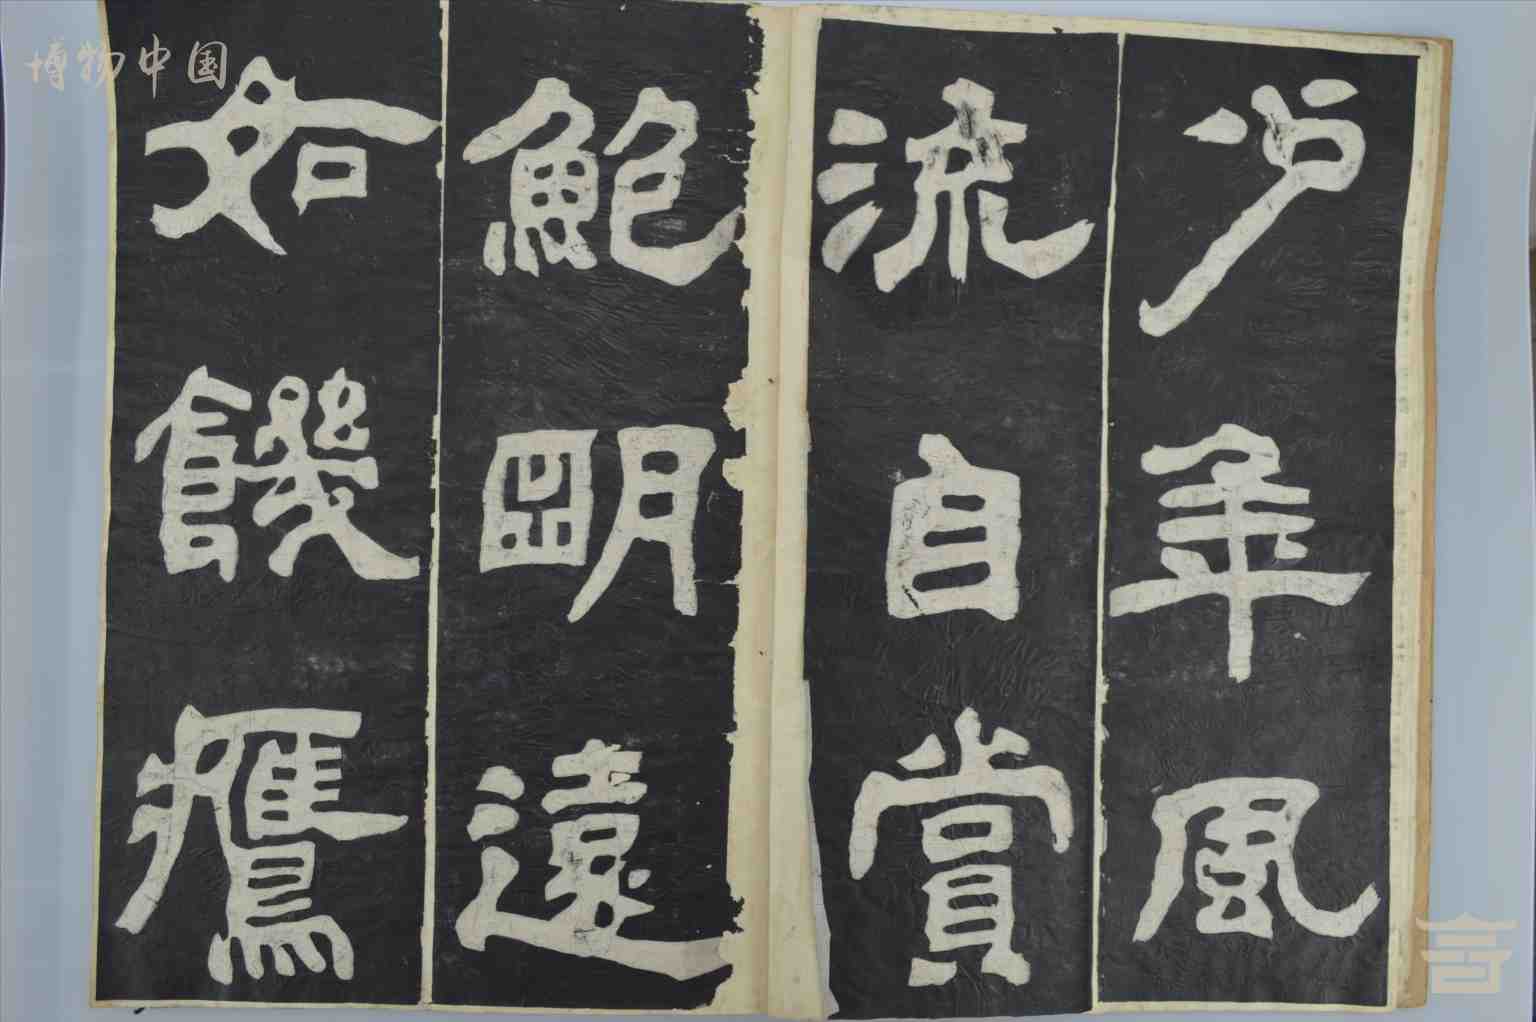 少年風
流自賞
鮑明遠
如饑鷹
博物中国